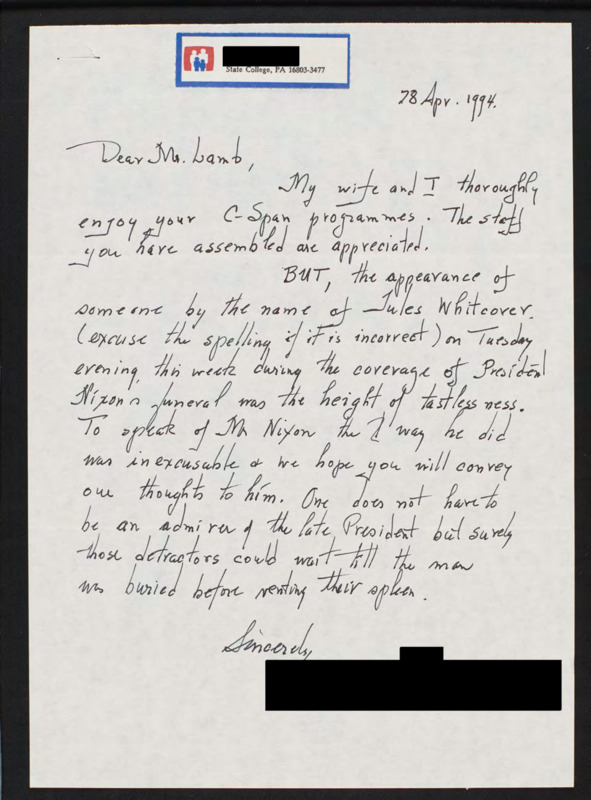 State College, PA 16803-3477
28 Apr. 1994.
Dear Mr. Lamb,
My wife and I thoroughly
enjoy your C-Span programmes. The staff
you have assembled are appreciated.
BUT, the appearance of
someone by the name of Jules Whitcover
(excuse the spelling if it is incorrect) on Tuesday
evening this week during the coverage of President
Nixon's funeral was the height of tastlessness.
To speak of Mr Nixon the way he did
was inexcusable & we hope you will convey
our thoughts to him. One does not have to
be an admirer of the late President but surely
those detractors could wait till the man
was buried before venting their spleen.
Sincerely,